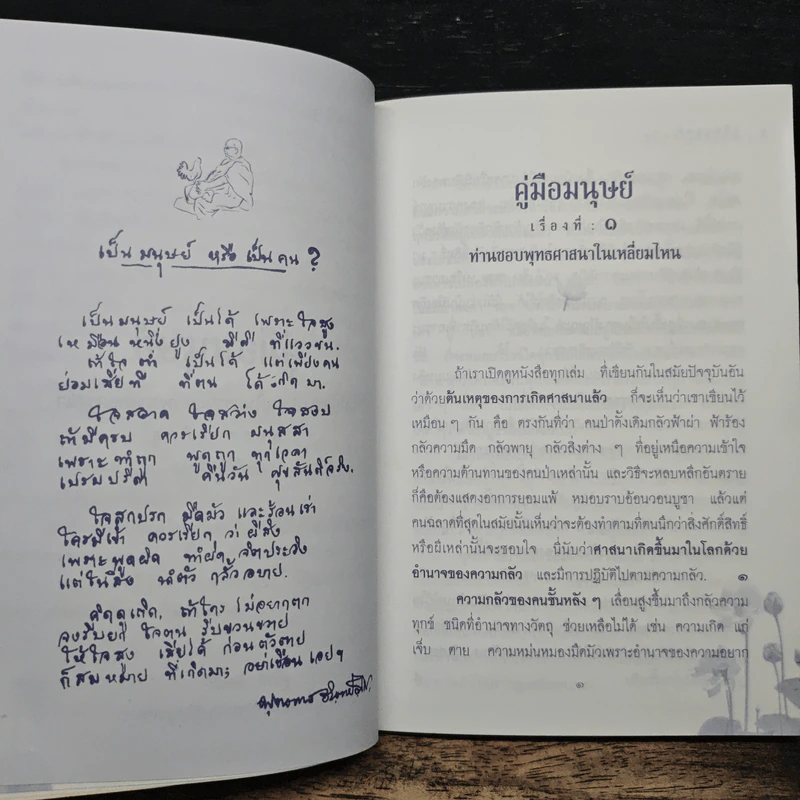 เป็นมนุษย์ หรือ เป็นคน ?
เป็นมนุษย์ เป็นได้ เพราะใจสูง
เหมือนหนึ่งยูง มีดี ที่แววขน.
ถ้าใจต่ำ เป็นได้ แต่เพียงคน
ย่อมเสียที ที่ตน ได้เกิดมา.
ใจสอาด ใจสว่าง ใจสงบ
ถ้ามีครบ ควรเรียก มนุสสา
เพราะทำถูก พูดถูก ทุกเวลา
เปรมปรีดา คืนวัน ศุขสันติ์จริง.
ใจสกปรก มืดมัว และร้อนเร่า
ใครมีเข้า ควรเรียก ว่าผีสิง
เพราะพูดผิด ทำผิด จิตประวิง
แต่ในสิ่ง นำตัว กลั้วอบาย.
คิดดูเถิด, ถ้าใคร ไม่อยากตก
จงรีบยก ใจตน รีบขวนขวาย
ให้ใจสูง เสียได้ ก่อนตัวตาย
ก็สมหมาย ที่เกิดมา; อย่าเชือนเอยฯ
พุทธทาส อินทปัญโญ.
คู่มือมนุษย์
เรื่องที่ : ๑
ท่านชอบพุทธศาสนาในเหลี่ยมไหน
ถ้าเราเปิดดูหนังสือทุกเล่ม ที่เขียนกันในสมัยปัจจุบันอัน
ว่าด้วยต้นเหตุของการเกิดศาสนาแล้ว ก็จะเห็นว่าเขาเขียนไว้
เหมือน ๆ กัน คือ ตรงกันที่ว่า คนป่าดั้งเดิมกลัวฟ้าผ่า ฟ้าร้อง
กลัวความมืด กลัวพายุ กลัวสิ่งต่าง ๆ ที่อยู่เหนือความเข้าใจ
หรือความต้านทานของคนป่าเหล่านั้น และวิธีจะหลบหลีกอันตราย
ก็คือต้องแสดงอาการยอมแพ้ หมอบราบอ้อนวอนบูชา แล้วแต่
คนฉลาดที่สุดในสมัยนั้นเห็นว่าจะต้องทำตามที่ตนนึกว่าสิ่งศักดิ์สิทธิ์
หรือผีเหล่านั้นจะชอบใจ นี่นับว่าศาสนาเกิดขึ้นมาในโลกด้วย
อำนาจของความกลัว และมีการปฏิบัติไปตามความกลัว. ๑
ความกลัวของคนชั้นหลัง ๆ เลื่อนสูงขึ้นมาถึงกลัวความ
ทุกข์ ชนิดที่อำนาจทางวัตถุ ช่วยเหลือไม่ได้ เช่น ความเกิด แก่
เจ็บ ตาย ความหม่นหมองมืดมัวเพราะอำนาจของความอยาก
๑